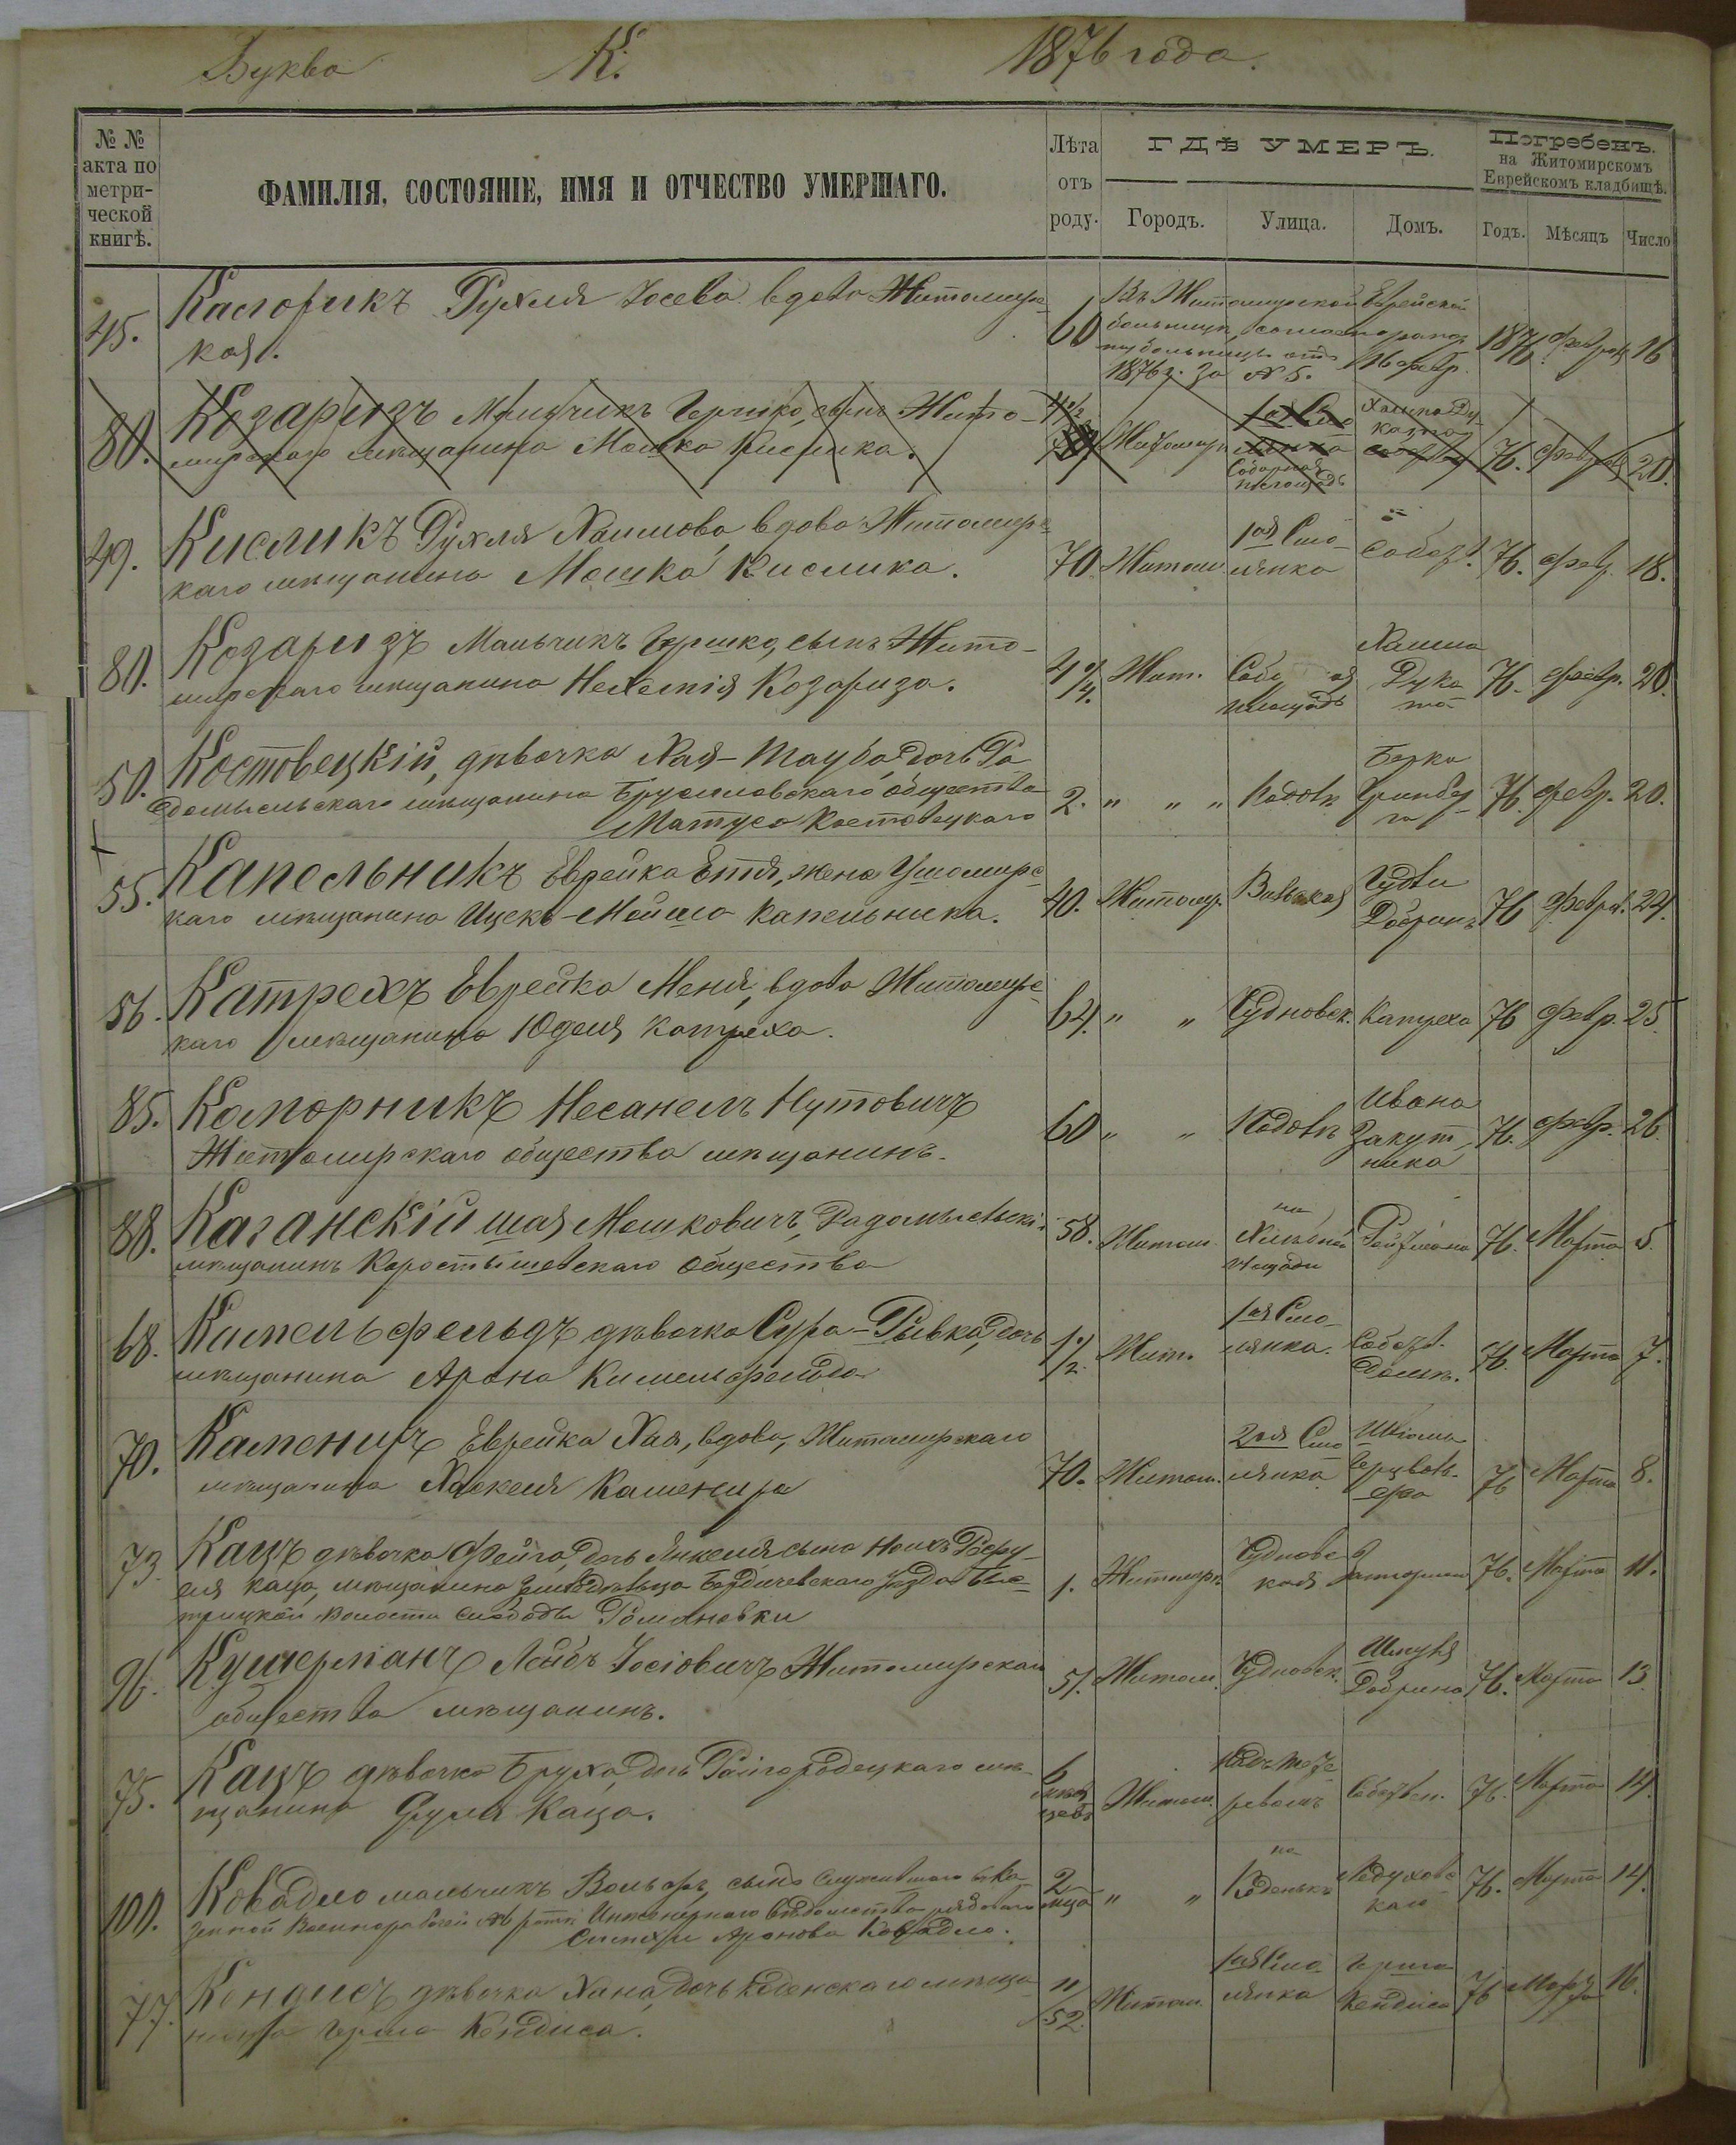 Буква К. 1876 года.
№ № акта по метрической книгѣ.
ФАМИЛІЯ, СОСТОЯНІЕ, ИМЯ И ОТЧЕСТВО УМЕРШАГО.
Лѣта отъ роду.
ГДѢ УМЕРЪ.
Городъ. Улица. Домъ.
Погребенъ.
на Житомирскомъ
Еврейскомъ кладбищѣ.
Годъ. Мѣсяцъ Число
45. Рухля Іосева вдова Житомирс- 60 Въ Житомирской Еврейской
кая. больницѣ, 1876 феврал 16
1876 г. за № 5. 16 февр.
80. Козаризъ Мальчикъ Гершко, сынъ Жито-
мирскаго мѣщанина Мошка Кислика. Житомиръ Соборная площадь 76. февраля 20.
49. Кисликъ Рухля Хаимова вдова Житомирс-
каго мѣщанина Мошка Кислика. 70. Житом. 1ая Смолянка собств. 76. февр. 18.
80. Козаризъ Мальчикъ Гершко, сынъ Жито-
мирскаго мѣщанина Нехемія Козариза. Жит. площадь Хаима Дукато 76. февр. 20.
50. Костовецкій, дѣвочка Хая-Тауба, дочь Ра-
домысльскаго мѣщанина Брусиловскаго общества
Матуса Костовецкаго 2. " " " Берка 76. февр. 20.
55. Капельникъ Еврейка Етя, жена Ушомирс-
каго мѣщанина Ицекъ-Мойша Капельника. 40. Житомир. Вильская Добринъ 76 феврал. 24.
56. Катрехъ Еврейка Меня, вдова Житомирс-
каго мѣщанина Юделя Катреха. 64. " " Чудновск. Катреха 76 февр. 25.
85. Капорникъ Несанель Нутовичъ
Житомирскаго общества мѣщанинъ. 60 " " Ивана Закутника 76. февр. 26.
88. Каганскій Шая Мошковичъ, Радомысльскій
мѣщанинъ Коростышевскаго общества 58. Житом. на Хлѣбной площади Рейзмана 76. Марта 5.
68. Кимельфельдъ дѣвочка Сура-Рывка, дочь
мѣщанина Арона Кимельфельда 1 1/2 Жит. 1ая Смолянка. Собств. Домъ. 76. Марта 7.
70. Камениръ Еврейка Хая, вдова, Житомирскаго
мѣщанина Хаскеля Каменира 70. Житом. 2ая Смолянка 76 Марта 8.
73. Кацъ дѣвочка Фейга, дочь Янкеля сына
Каца, мѣщанина Земледѣльца Бердичевскаго уѣзда
волости слободы Романовки 1. Житомиръ Чудновская 76. Марта 11.
96. Кушерманъ Лейбъ Іосіовичъ Житомирскаго
общества мѣщанинъ. 51. Житом. Чудновск. Шмуля Добрина 76. Марта 13.
75. Кацъ дѣвочка Бруха, дочь Райгородецкаго мѣ-
щанина Срулъ Каца. 6 мѣсяцевъ Житом. Собствен. 76. Марта 14.
100. Ковадло мальчикъ Вольфъ, сынъ служившаго въ Ка-
зенной Военнорабочей ротѣ Инженернаго Вѣдомства рядоваго
Аронова Ковадло. 2 мѣсца " " на 76. Марта 14.
77. Кендисъ дѣвочка Хана, дочь мѣща-
нина Герша Кендиса. 11/52. Житом. 1ая Смолянка Герша Кендиса 76 Марта 16.